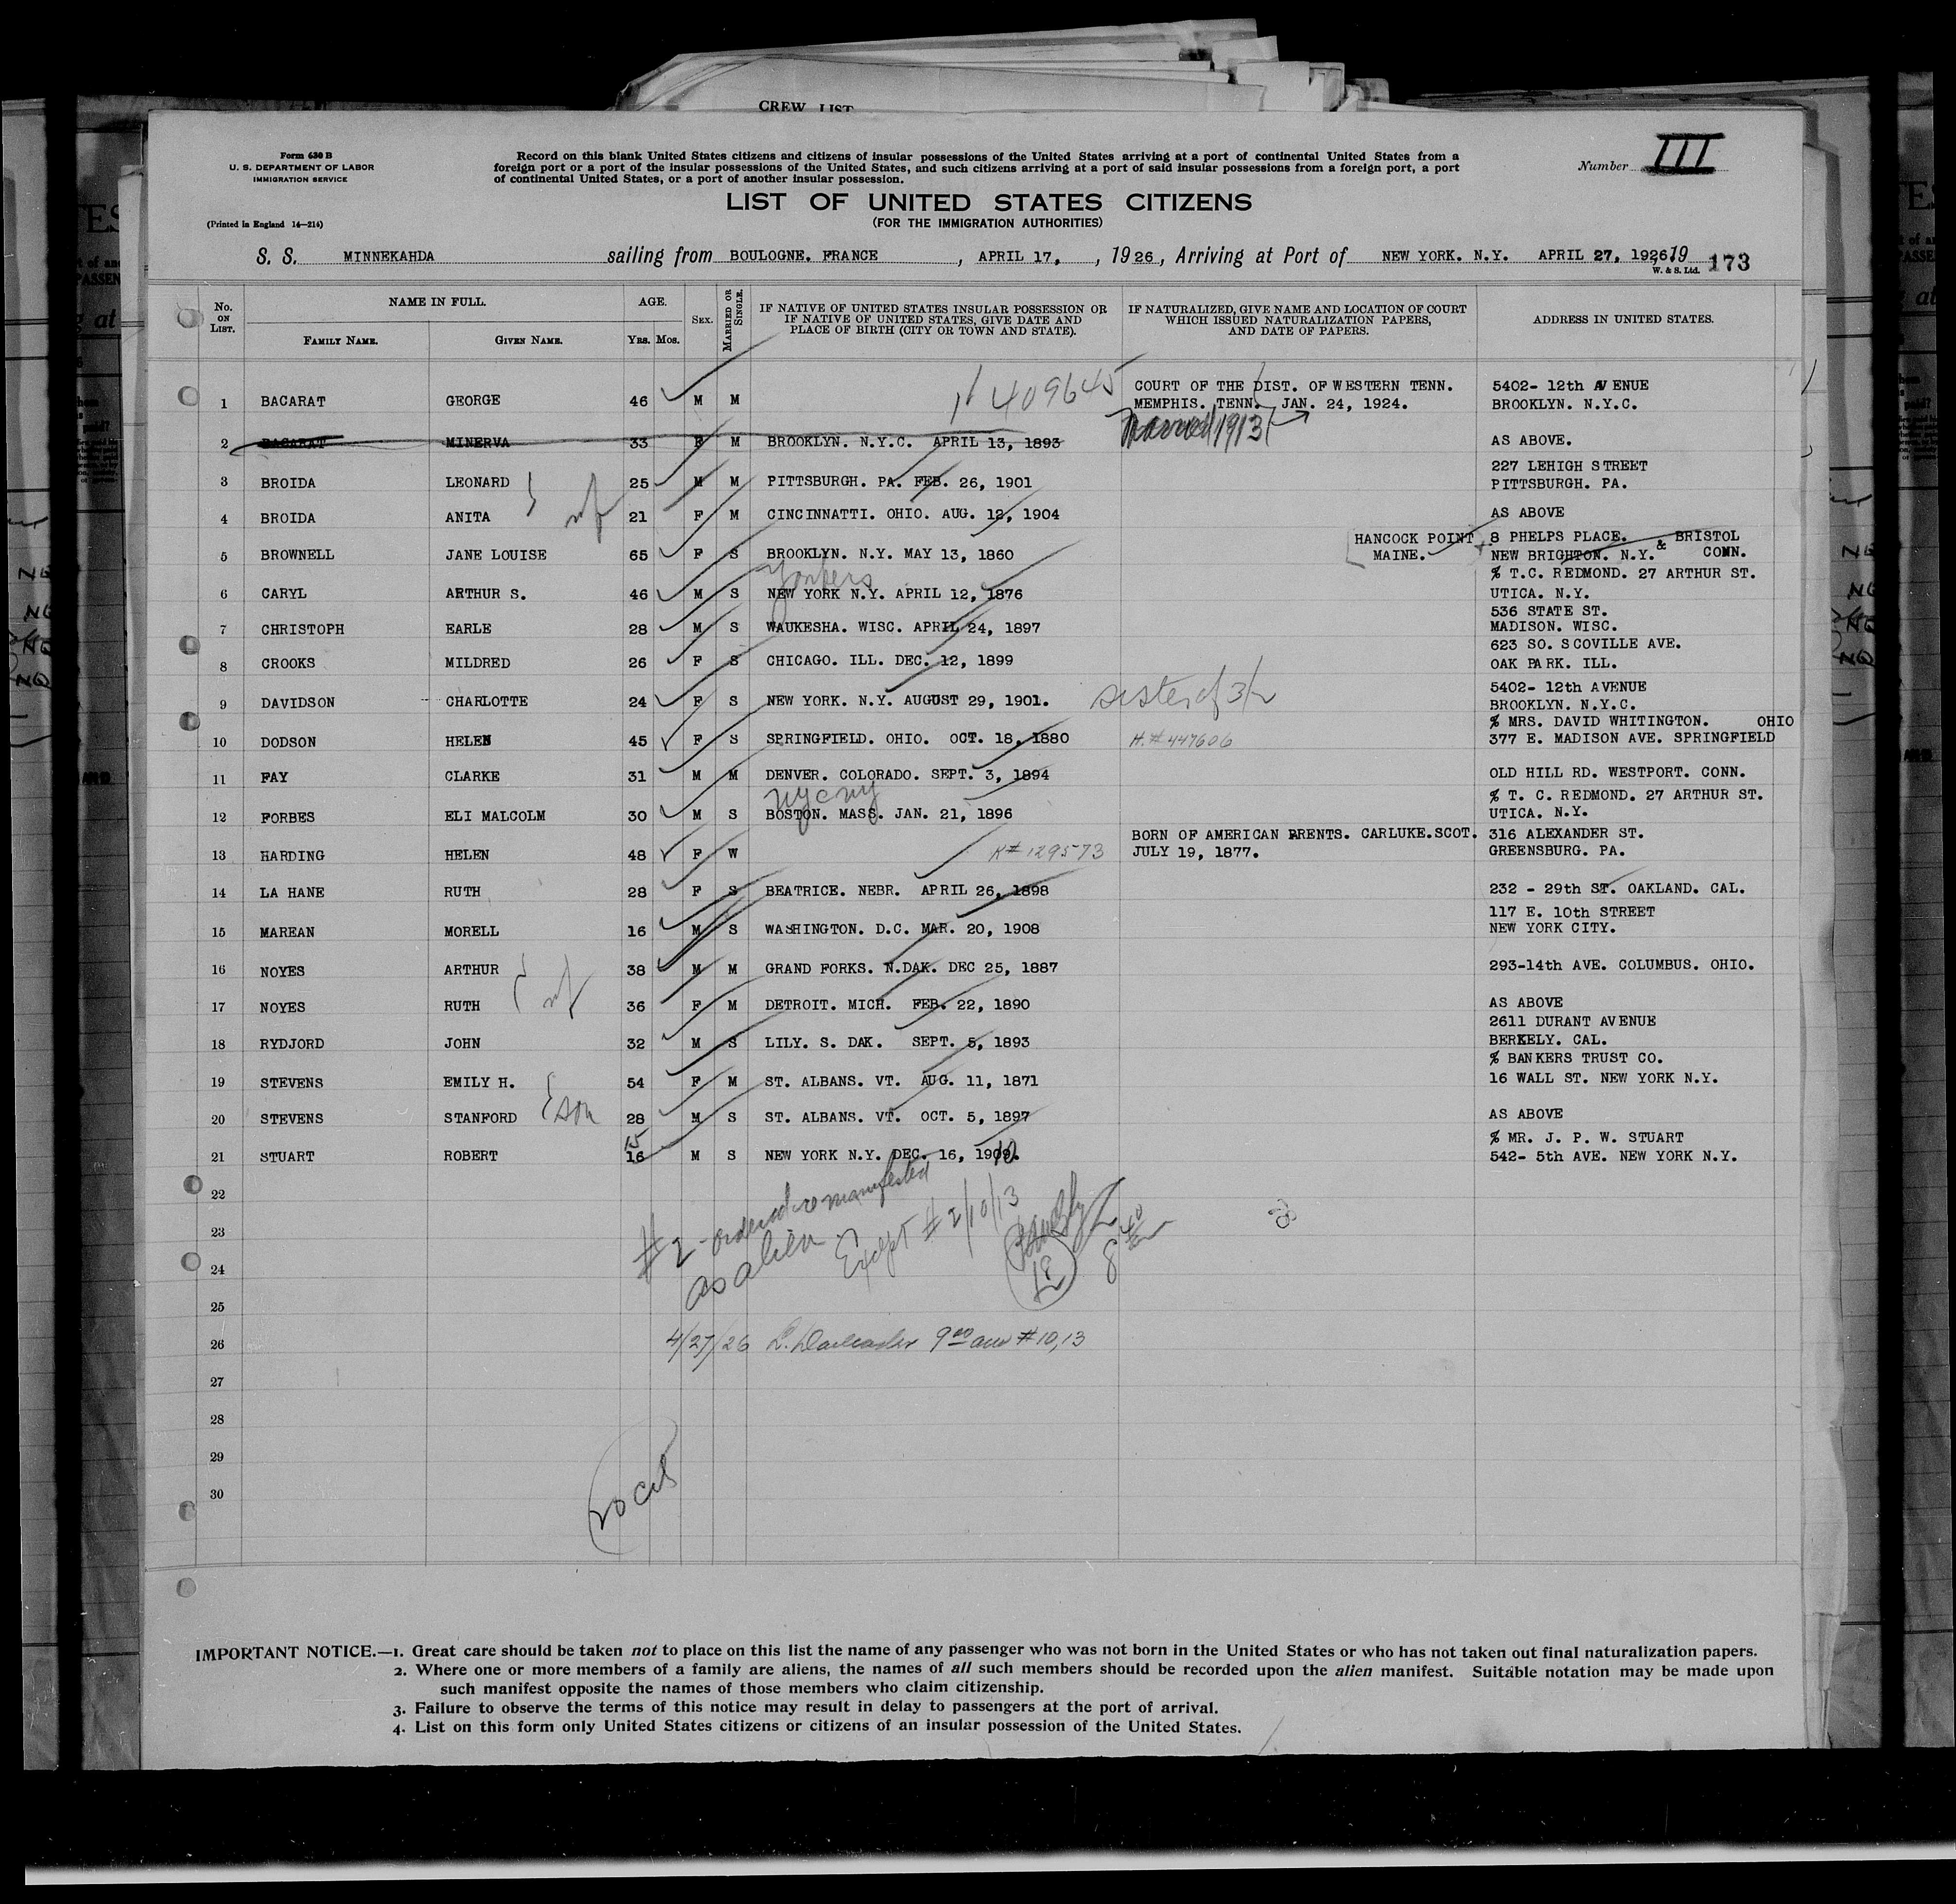 CREW LIST
Form 630 B
U. S. DEPARTMENT OF LABOR
IMMIGRATION SERVICE
(Printed in England 14—214)
Record on this blank United States citizens and citizens of insular possessions of the United States arriving at a port of continental United States from a
foreign port or a port of the insular possessions of the United States, and such citizens arriving at a port of said insular possessions from a foreign port, a port
of continental United States, or a port of another insular possession.
Number III
LIST OF UNITED STATES CITIZENS
(FOR THE IMMIGRATION AUTHORITIES)
S. S. MINNEKAHDA sailing from BOULOGNE. FRANCE , APRIL 17, , 1926, Arriving at Port of NEW YORK. N.Y. APRIL 27, 1926, 19
W. & S. Ltd. 173
No. ON LIST.
NAME IN FULL.
FAMILY NAME.
GIVEN NAME.
AGE.
YRS. MOS.
SEX.
MARRIED OR SINGLE.
IF NATIVE OF UNITED STATES INSULAR POSSESSION OR
IF NATIVE OF UNITED STATES, GIVE DATE AND
PLACE OF BIRTH (CITY OR TOWN AND STATE).
IF NATURALIZED, GIVE NAME AND LOCATION OF COURT
WHICH ISSUED NATURALIZATION PAPERS,
AND DATE OF PAPERS.
ADDRESS IN UNITED STATES.
409645 COURT OF THE DIST. OF WESTERN TENN. 5402- 12th AVENUE
1 BACARAT GEORGE 46 M M MEMPHIS. TENN. JAN. 24, 1924. BROOKLYN. N.Y.C.
married 1913
2 BACARAT MINERVA 33 F M BROOKLYN. N.Y.C. APRIL 13, 1893 AS ABOVE.
227 LEHIGH STREET
3 BROIDA LEONARD 25 M M PITTSBURGH. PA. FEB. 26, 1901 PITTSBURGH. PA.
4 BROIDA ANITA 21 F M CINCINNATTI. OHIO. AUG. 12, 1904 AS ABOVE
HANCOCK POINT 8 PHELPS PLACE. BRISTOL
5 BROWNELL JANE LOUISE 65 F S BROOKLYN. N.Y. MAY 13, 1860 MAINE. NEW BRIGHTON. N.Y. & CONN.
Yonkers
% T.C. REDMOND. 27 ARTHUR ST.
6 CARYL ARTHUR S. 46 M S NEW YORK N.Y. APRIL 12, 1876 UTICA. N.Y.
536 STATE ST.
7 CHRISTOPH EARLE 28 M S WAUKESHA. WISC. APRIL 24, 1897 MADISON. WISC.
623 SO. SCOVILLE AVE.
8 CROOKS MILDRED 26 F S CHICAGO. ILL. DEC. 12, 1899 OAK PARK. ILL.
sister of 3/2 5402- 12th AVENUE
9 DAVIDSON CHARLOTTE 24 F S NEW YORK. N.Y. AUGUST 29, 1901. BROOKLYN. N.Y.C.
% MRS. DAVID WHITINGTON. OHIO
10 DODSON HELEN 45 F S SPRINGFIELD. OHIO. OCT. 18, 1880 H.#447606 377 E. MADISON AVE. SPRINGFIELD
11 FAY CLARKE 31 M M DENVER. COLORADO. SEPT. 3, 1894 OLD HILL RD. WESTPORT. CONN.
nyc ny
% T. C. REDMOND. 27 ARTHUR ST.
12 FORBES ELI MALCOLM 30 M S BOSTON. MASS. JAN. 21, 1896 UTICA. N.Y.
BORN OF AMERICAN PRENTS. CARLUKE.SCOT. 316 ALEXANDER ST.
13 HARDING HELEN 48 F W #129573 JULY 19, 1877. GREENSBURG. PA.
14 LA HANE RUTH 28 F S BEATRICE. NEBR. APRIL 26, 1898 232 - 29th ST. OAKLAND. CAL.
117 E. 10th STREET
15 MAREAN MORELL 16 M S WASHINGTON. D.C. MAR. 20, 1908 NEW YORK CITY.
16 NOYES ARTHUR 38 M M GRAND FORKS. N.DAK. DEC 25, 1887 293-14th AVE. COLUMBUS. OHIO.
17 NOYES RUTH 36 F M DETROIT. MICH. FEB. 22, 1890 AS ABOVE
2611 DURANT AVENUE
18 RYDJORD JOHN 32 M S LILY. S. DAK. SEPT. 5, 1893 BERKELY. CAL.
% BANKERS TRUST CO.
19 STEVENS EMILY H. 54 F M ST. ALBANS. VT. AUG. 11, 1871 16 WALL ST. NEW YORK N.Y.
20 STEVENS STANFORD son 28 M S ST. ALBANS. VT. OCT. 5, 1897 AS ABOVE
15 % MR. J. P. W. STUART
21 STUART ROBERT 16 M S NEW YORK N.Y. DEC. 16, 1909. 10 542- 5th AVE. NEW YORK N.Y.
22
23
24
25
26
27
28
29
30
#2 - ordered remanifested
as alien
Except #2/10/13
4/27/26 9 00 am #10,13
20 cits
IMPORTANT NOTICE.—1. Great care should be taken not to place on this list the name of any passenger who was not born in the United States or who has not taken out final naturalization papers.
2. Where one or more members of a family are aliens, the names of all such members should be recorded upon the alien manifest. Suitable notation may be made upon
such manifest opposite the names of those members who claim citizenship.
3. Failure to observe the terms of this notice may result in delay to passengers at the port of arrival.
4. List on this form only United States citizens or citizens of an insular possession of the United States.